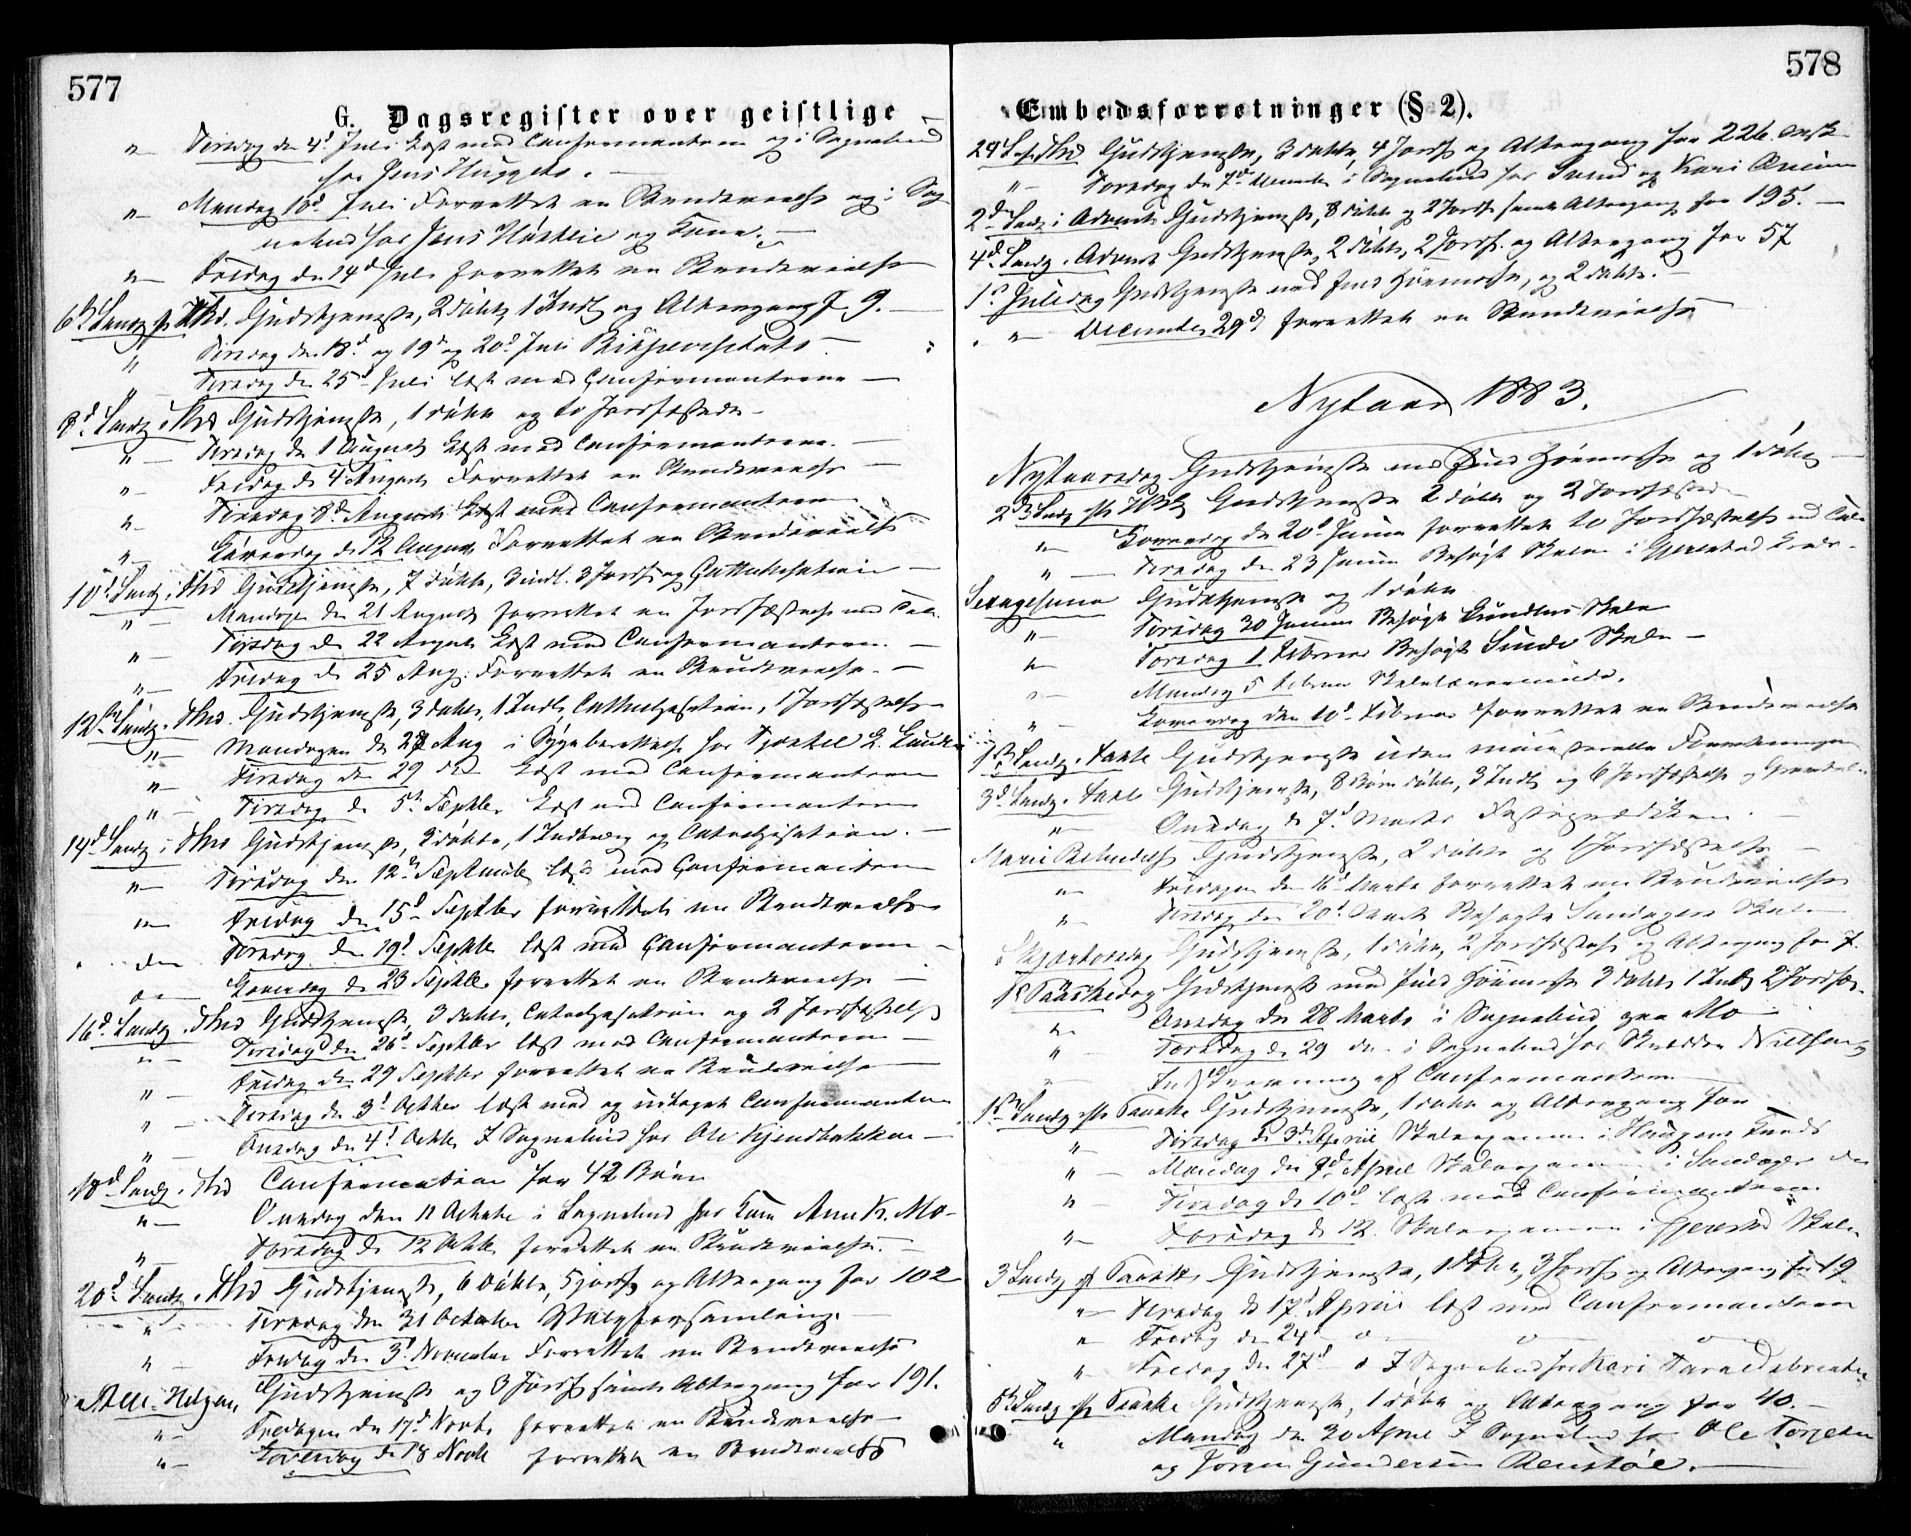 577
G. Dagsregister over geistlige
" Tirsdag den 4d Juli Læst med Confirmanterne og i Sognebud
for Jens
" Mandag 10d Juli Forrettet en Brudevielse og i Sog-
nebud for Jens og Kone.
" Fredag den 14d Juli forrettet en Brudevielse
6te Søndg Gudstjeneste, 2 døbte, 1 Indl og Altergang f. 9.
" Tirsdag den 18d og 19d og 20d Juli
" Tirsdag den 25d Juli læst med Confirmanterne
8d Søndg Gudstjeneste, 1 døbt og to Jordfæstede
" Tirsdag den 1 August Læst med Confirmanterne.
" Fredag d 4 August Forrettet en Brudevielse
" Tirsdag 8de August Læst med Confirmanterne
" Løverdag d 12 August Forrettet en Brudevielse
10d Søndg Gudstjeneste, 7 døbte, 3 indl. 3 Jordf og Catechisation
" Mandagen den 21 August forrettet en Jordfæstelse med Tale.
" Tirsdag d 22 August Læst med Confirmanterne.
" Fredag d 25 Aug. Forrettet en Brudevielse.
12te Søndg Gudstjeneste, 3 døbte, 1 Indl, Catechisation, 1 Jordfæstelse
" Mandagen d 28 Aug i for
" Tirsdag den 29 Læst med Confirmanterne
" Tirsdag d 5te Septbr Læst med Confirmanterne
14d Søndg Gudstjeneste, 3 døbte, 1 og Catechisation.
" Tirsdag den 12te September læst med Confirmanterne
" Fredag den 15d Septbr forrettet en Brudevielse
" Tirsdag den 19d Septbr læst med Confirmanterne
" Løverdag d 23 Septbr forrettet en Brudevielse
16d Søndg Gudstjeneste, 3 døbte, Catechisation og 2 Jordfæstelse
" Tirsdag den 26d Septbr læst med Confirmanterne
" Fredag den 29 Septbr forrettet en Brudevielse
" Tirsdag den 3d Octbr læst med og Confirmanterne
" Onsdag den 4d Octbr I Sognebud for Ole
18d Søndg Confirmation for 42 Børn
" Onsdag den 11 October i Sognebud for Kone Anne K. Mo
" Torsdag d 12 Octbr forrettet en Brudevielse.
20d Søndg Gudstjeneste, 6 døbte, 5 jordf og Altergang for 102
" Tirsdag den 31 October Valgforsamling.
" Fredag den 3d November Forrettet en Brudevielse
Alle Helgen, Gudstjeneste og 3 Jordf samt Altergang for 191.
" Fredagen den 17d Novbr forrettet en Brudevielse
" Løverdag d 18 Novbr forrettet en Brudevielse
578
Embedsforretninger (§ 2).
24 S. Gudstjeneste, 3 døbte, 4 Jordf og Altergang for 226
" Torsdag den 7de December i Sognebud for Svend og Kari
2den Søndg i Advent Gudstjeneste, 8 døbte og 2 Jordf samt Altergang for 195.
4d Søndg i Advent Gudstjeneste, 2 døbte, 2 Jordf. og Altergang for 57
1ste Juledag Gudstjeneste med fuld Høimesse, og 2 døbte.
" December 29d forrettet en Brudevielse
Nytaar 1883.
Nytaarsdag Gudstjeneste med fuld Høimesse og 1 døbt
2den Søndg Gudstjeneste 2 døbte og 2 Jordfæstede
" Løverdag den 20d Januar forrettet to Jordfæstelse med Tale
" Tirsdag den 23 Januar Besøgt Skolen i Gjerestad Kreds.
Sexagesima Gudstjeneste og 1 døbt
" Tirsdag 30 Januar Besøgt Skole
" Torsdag 1 Februar Besøgt Sunde Skole
" Mandag 5 Februar
" Løverdag den 10d Februar forrettet en Brudevielse
1ste Søndg i Faste Gudstjeneste uden ministerielle Forretninger
3d Søndg i Faste Gudstjeneste, 8 Børn døbte, 3 Indl og 6 Jordfæstelse
" Onsdag d 7d Marts Fasteprædiken.
Mariæ Gudstjeneste, 2 døbte og 1 Jordfæstelse
" Fredagen den 16d Marts forrettet en Brudevielse
" Tirsdag den 20d Marts Besøgte Skole
Skjærtorsdag Gudstjeneste, 1 døbt, 2 Jordfæstelse og Altergang for 7.
1ste Paaskedag Gudstjeneste med fuld Høimesse 3 døbte 1 Indl 2 Jordfæs.
" Onsdag den 28 Marts i Sognebud paa Mo
" Torsdag d 29 i Sognebud for Nielsen og
" Indskrivning af Confirmanterne
1ste Søndg eft Paaske Gudstjeneste, 1 døbt og Altergang for
" Tirsdag d 3d April Skoleexamen i
" Mandag den 9d April Skoleexamen i
" Tirsdag d 10d læst med Confirmanterne
" Torsdag d 12. Skoleexamen i Gjerestad Skole
3 Søndg eft Paaske, Gudstjeneste, 1 døbt, 3 Jordf og Altergang for 19
" Tirsdag d 17d April læst med Confirmanterne
" Tirsdag den 24d o o o
" Fredag den 27d o I Sognebud for Kari
5te Søndg eft Paaske Gudstjeneste, 1 døbt og Altergang for 40.
" Mandag den 30 April I Sognebud for Ole Torjesen
og Gundersen